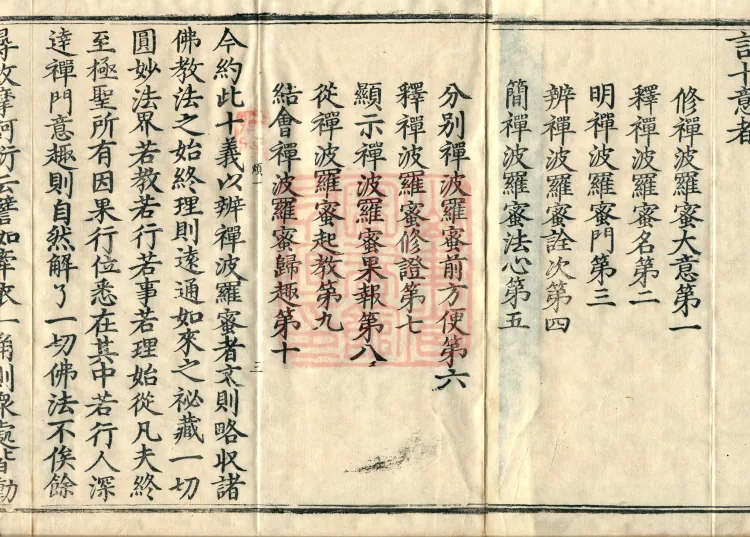 言十意者
修禪波羅蜜大意第一
釋禪波羅蜜名第二
明禪波羅蜜門第三
辨禪波羅蜜詮次第四
簡禪波羅蜜法心第五
分別禪波羅蜜前方便第六
釋禪波羅蜜修證第七
顯示禪波羅蜜果報第八
從禪波羅蜜起教第九
結會禪波羅蜜歸趣第十
今約此十義以辨禪波羅蜜者文則略收諸
佛教法之始終理則遠通如來之祕藏一切
圓妙法界若教若行若事若理始從凡夫終
至極聖所有因果行位悉在其中若行人深
達禪門意趣則自然解了一切佛法不俟餘
尋故摩訶衍云譬如牽衣一角則眾處皆動
煩一
三